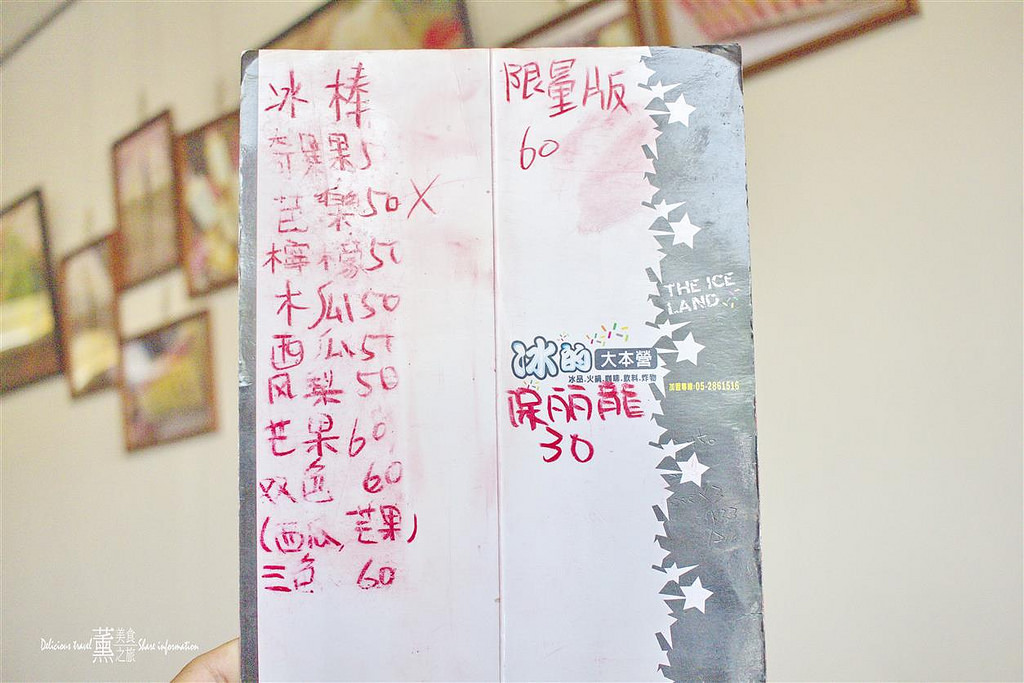 冰棒
奇異果5
芭樂50 X
檸檬50
木瓜50
西瓜50
凤梨50
芒果60
双色60
(西瓜,芒果)
三色 60
限量版
60
THE ICE
LAND
冰的大本營
冰品.火鍋.咖啡.飲料.炸物
加盟專線:05-2861516
保丽龍
30
Delicious travel 薰 美食之旅 Share information